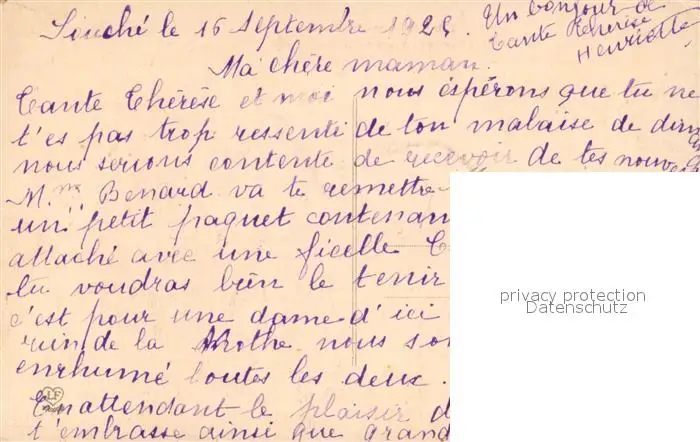 Souché le 16 Septembre 1925.
Un bonjour de
tante Thérèse
Henriette
Ma chère maman.
Tante Thérèse et moi nous éspérons que tu ne
t'es pas trop ressenti de ton malaise de dim
nous serions contente de recevoir de tes nouve
Mme Benard va te remettre
un petit paquet contenan
attaché avec une ficelle
tu voudras bien le tenir
c'est pour une dame d'ici
de la Mothe nous so
enrhumé toutes les deux.
En attendant le plaisir d
t'embrasse ainsi que grand
privacy protection
Datenschutz